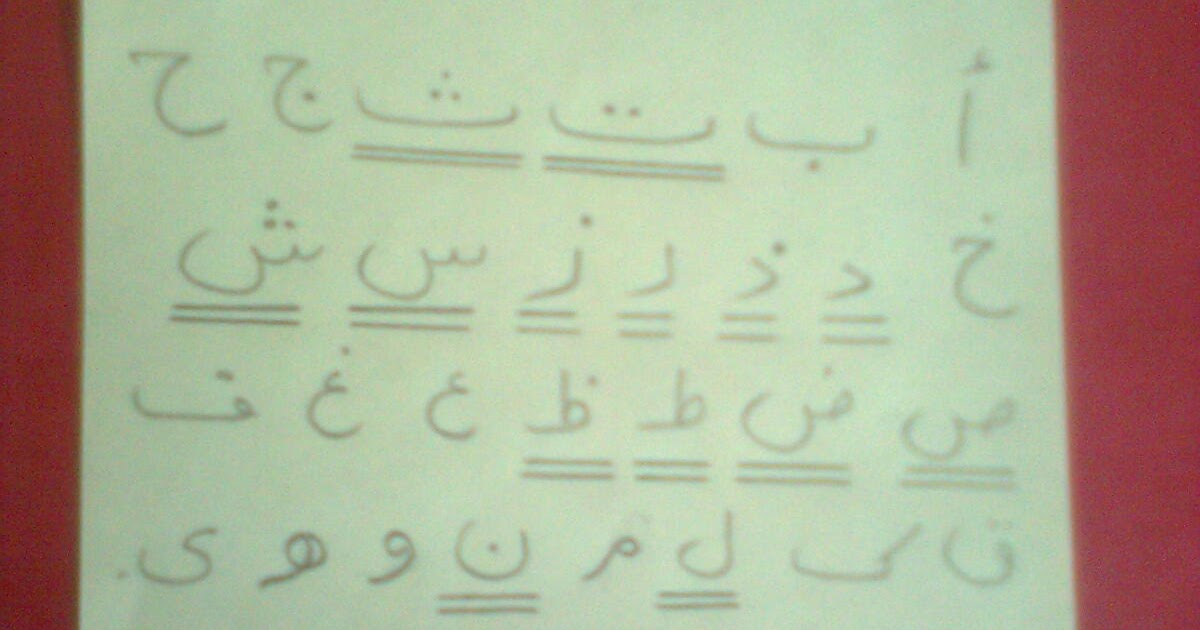 أ ب ت ث ج ح
خ د ذ ر ز س ش
ص ض ط ظ ع غ ف
ق ک ل م ن و ه ی.